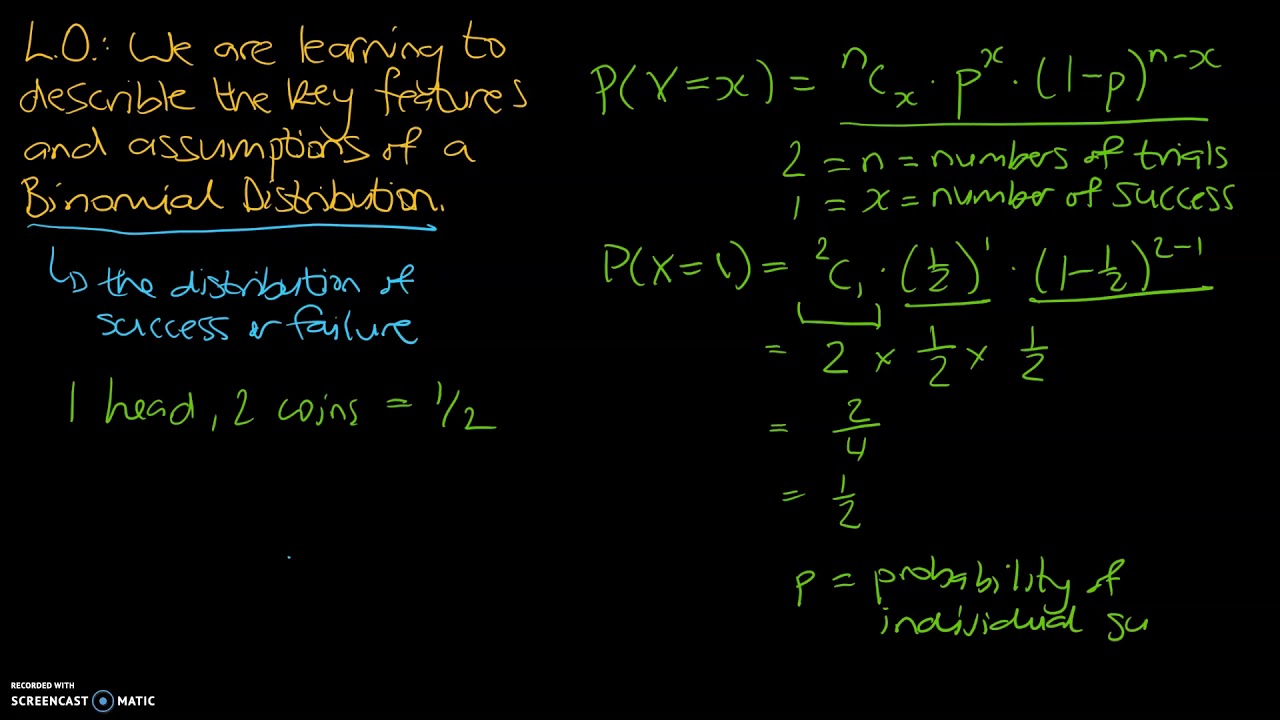 L.O.: We are learning to
describle the key features
and assumptions of a
Binomial Distribution.
↳ the distribution of
success or failure
1 head, 2 coins = 1/2
P(X=x) = ⁿCₓ · pˣ · (1-p)ⁿ⁻ˣ
2 = n = numbers of trials
1 = x = number of success
P(X=1) = ²C₁ · (1/2)¹ · (1-1/2)²⁻¹
= 2 × 1/2 × 1/2
= 2/4
= 1/2
p = probability of
individual su
RECORDED WITH
SCREENCAST MATIC